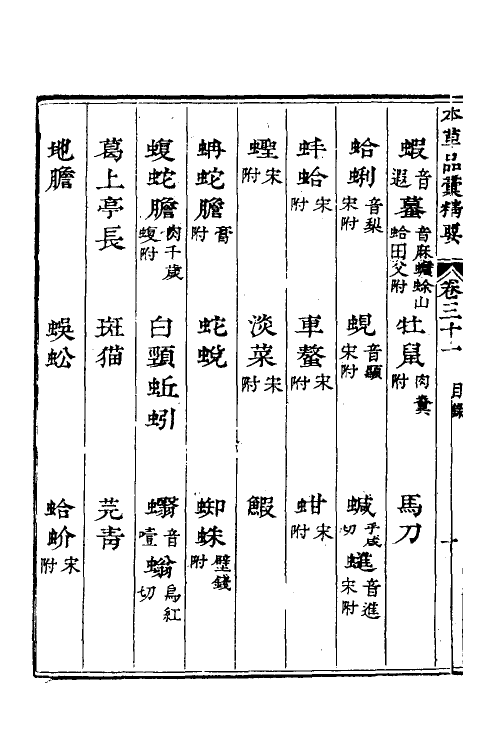 本草品彙精要 卷三十一 目錄 一
蝦音遐蟇音麻蟾蜍山蛤田父附 牡鼠肉糞附 馬刀
蛤蜊音梨宋附 蜆音顯宋附 蝛乎咸切𧍧音進宋附
蚌蛤宋附 車螯宋附 蚶宋附
蟶宋附 淡菜宋附 鰕
蚺蛇膽膏附 蛇蛻 蜘蛛壁錢附
蝮蛇膽肉千歲蝮附 白頸蚯蚓 蠮音噎螉烏紅切
葛上亭長 斑猫 芫青
地膽 蜈蚣 蛤蚧宋附